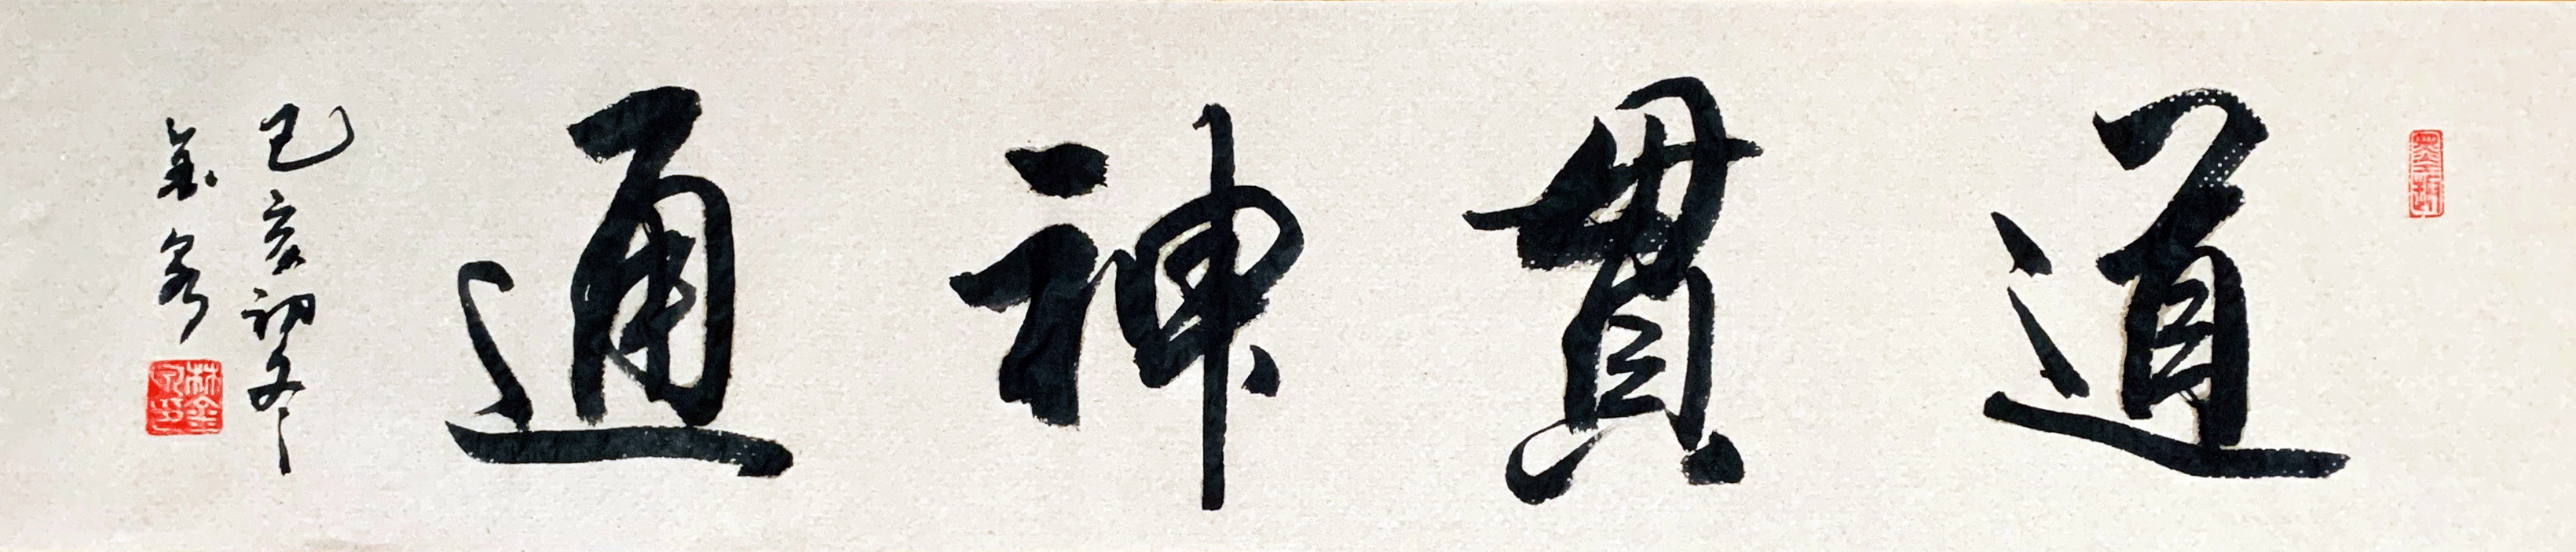 道貫神通
己亥初冬